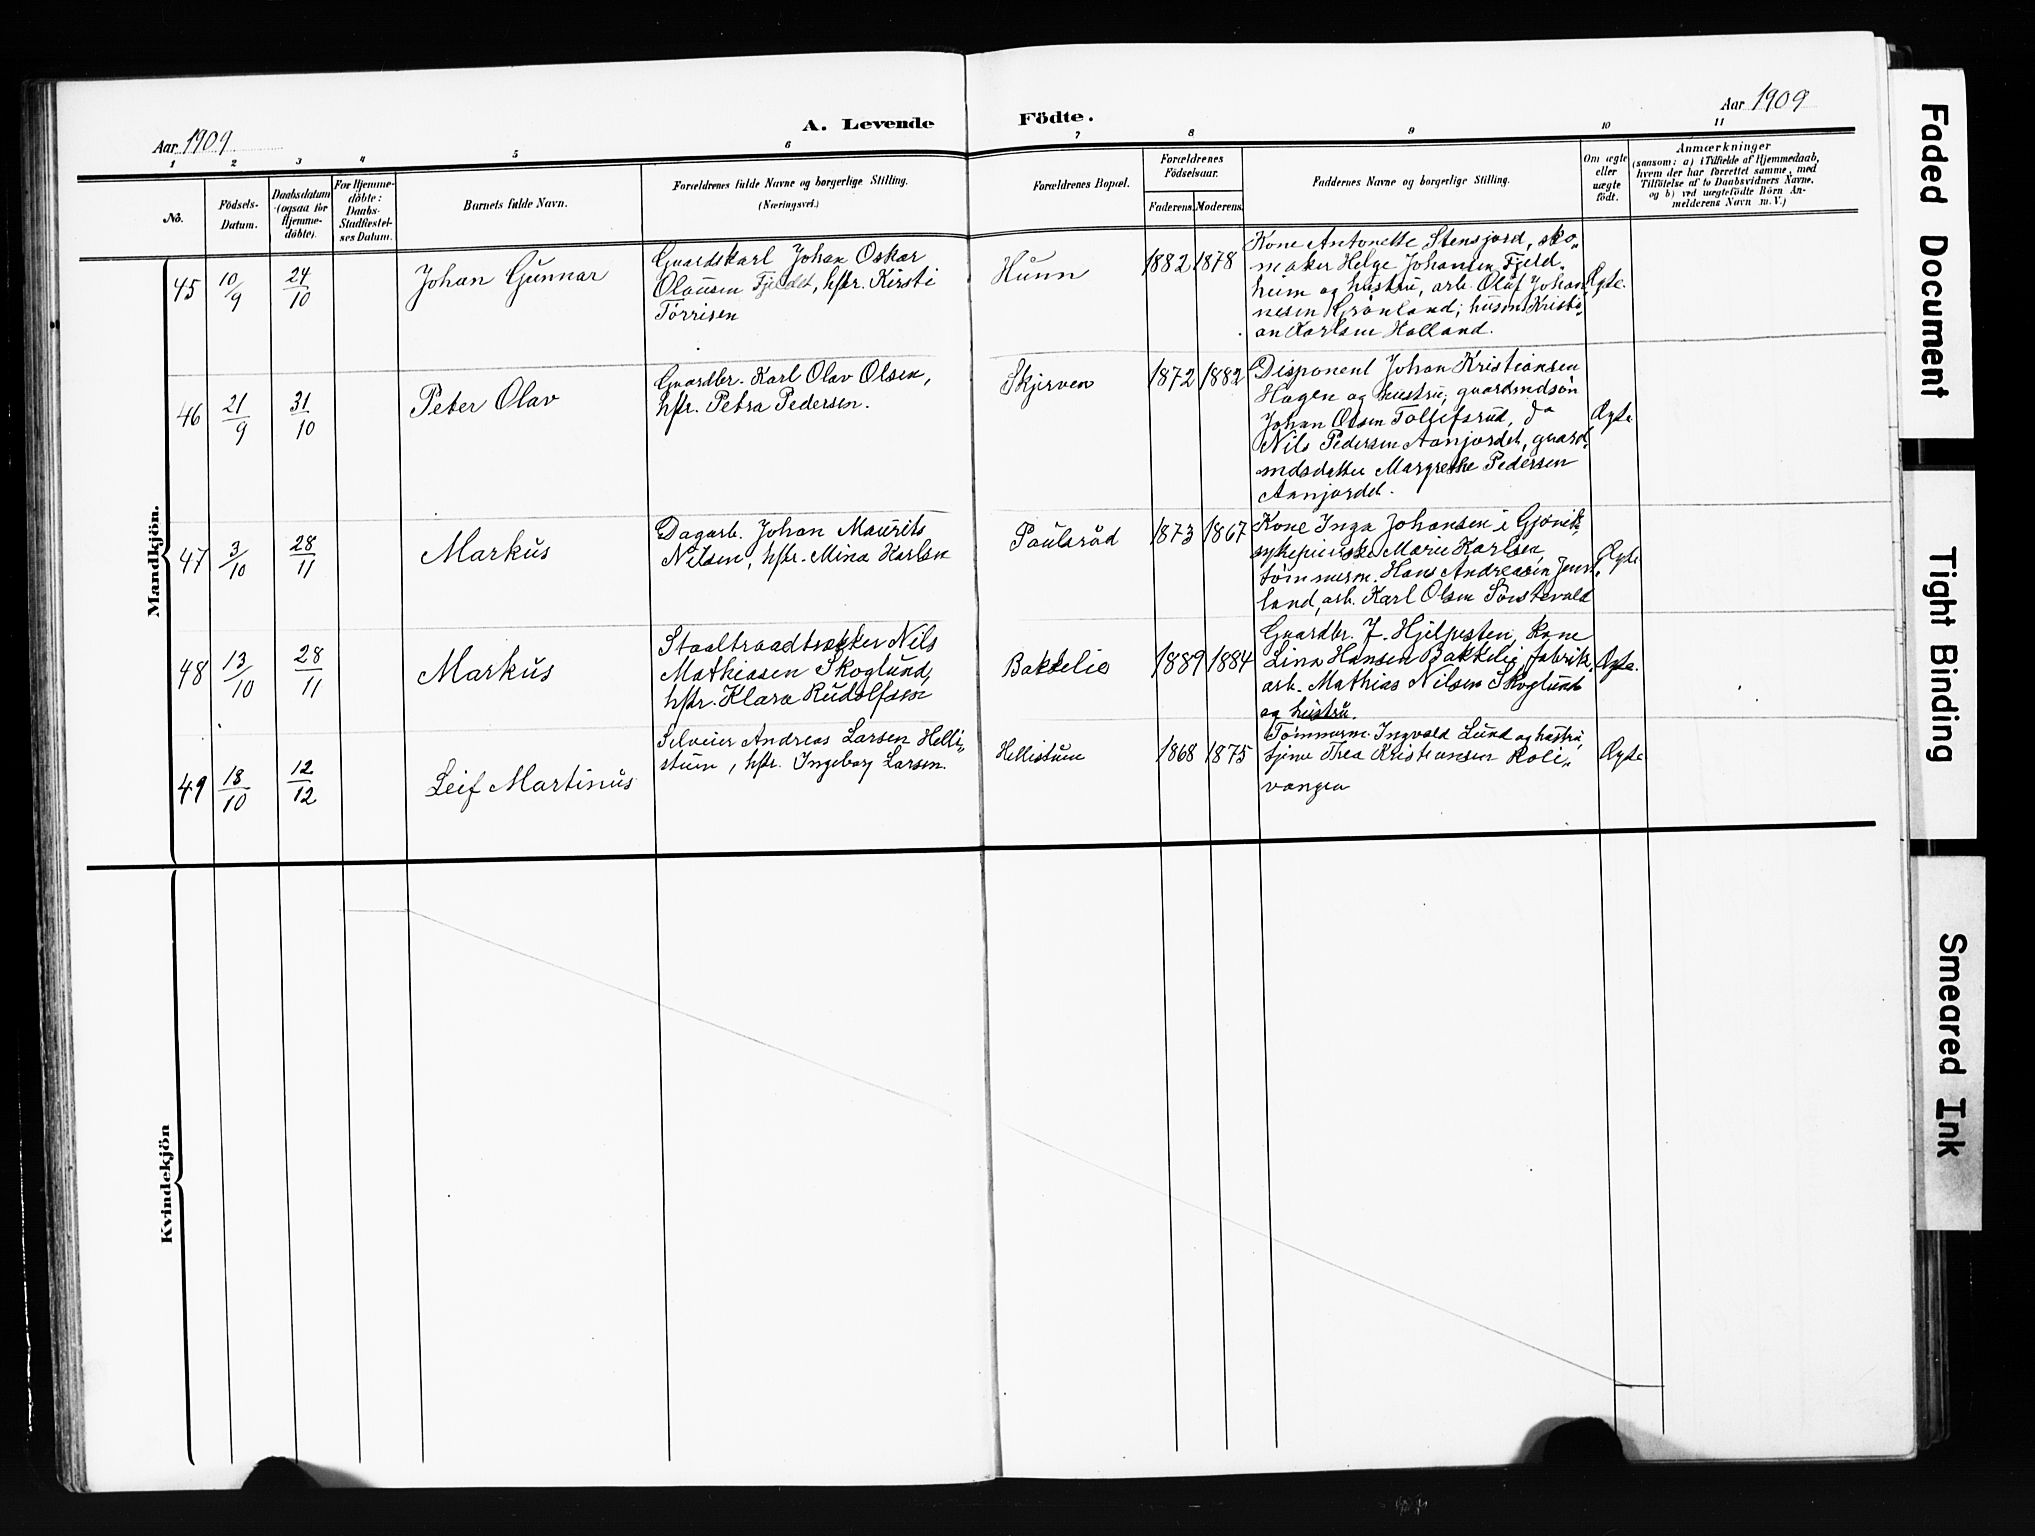 Aar 1909
A. Levende Födte.
Aar 1909
1 2 3 4 5 6 7 8 9 10 11
No.
Födsels-
Datum.
Daabsdatum
(ogsaa for
Hjemme-
döbte).
For Hjemme-
döbte:
Daabs-
Stadfæstel-
ses Datum.
Barnets fulde Navn.
Forældrenes fulde Navne og borgerlige Stilling.
(Næringsvei.)
Forældrenes Bopæl.
Forældrenes
Födselsaar.
Faderens. Moderens.
Faddernes Navne og borgerlige Stilling.
Om ægte
eller
uægte
födt.
Anmærkninger
(saasom: a) i Tilfælde af Hjemmedaab,
hvem der har forrettet samme, med
Tilföielse af to Daabsvidners Navne,
og b) ved uægtefödte Börn An-
melderens Navn m. V.)
Mandkjön.
45 10/9 24/10 Johan Gunnar
Gaardskarl Johan Oskar
Olausen Fjeldet, hstr. Kirsti
Törrisen
Hunn
1882 1878
Kone Antonette Stensjord, sko-
maker Helge Johansen Fjeld-
heim og hustru, arb. Oluf Johan-
nesen Grönland, husm. Kristi-
an Karlsen Halland.
Ægte.
46 21/9 31/10 Peter Olav
Gaardbr. Karl Olav Olsen,
hstr. Petra Pedersen.
Skjerven
1872 1882
Disponent Johan Kristiansen
Hagen og hustru, gaardmdsön
Johan Olsen Tollefsrud, do
Nils Pedersen Aanjordet, gaard-
mdsdatter Margrethe Pedersen
Aanjordet.
Ægte
47 3/10 28/11 Markus
Dagarb. Johan Maurits
Nilsen, hstr. Mina Karlsen
Paulsröd
1873 1867
Kone Inga Johansen i Gjövik,
sykepleierske Marie Karlsen,
tömmerm. Hans Andreasen
land, arb. Karl Olsen
Ægte.
48 13/10 28/11 Markus
Staaltraadtrækker Nils
Mathiasen Skoglund,
hstr. Klara Rudolfsen
Bakkelie
1889 1884
Gaardbr. J. Hjelpesten, kone
Lina Hansen Bakkelie, fabrik-
arb. Mathias Nilsen Skoglund
og hustru.
Ægte.
49 18/10 12/12 Leif Martinus
Selveier Andreas Larsen Helli-
stuen, hstr. Ingeborg Larsen.
Hellistuen
1868 1875
Tömmerm. Ingvald Lund og hustru,
tjener Thea Kristiansen Roli-
vangen
Ægte
Kvindekjön
Faded Document
Tight Binding
Smeared Ink